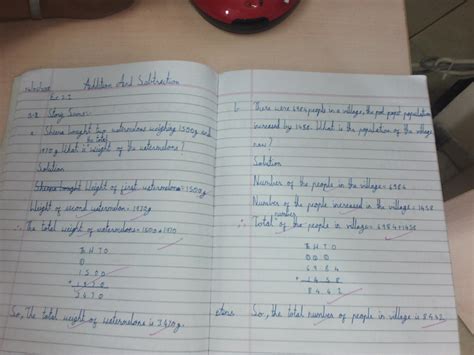 Addition And Subtraction
Ex 2.2
Story Sums:
a. Sheena bought two watermelons weighing 1500g and
the total
1970g. What is weight of the watermelons?
Solution
Sheena bought Weight of first watermelon = 1500g
Weight of second watermelon = 1970g
∴ The total weight of watermelons = 1500 + 1970
H T O
1500
+ 1970
3470
So, The total weight of watermelons is 3470g.
b. There were 6984 people in a village, the population
increased by 1458. What is the population of the village
now?
Solution
Number of the people in the village = 6984
Number of the people increased in the village = 1458
number
∴ Total of the people in village = 6984 + 1458
H T O
6984
+ 1458
8442
So, the total number of people in village is 8442.